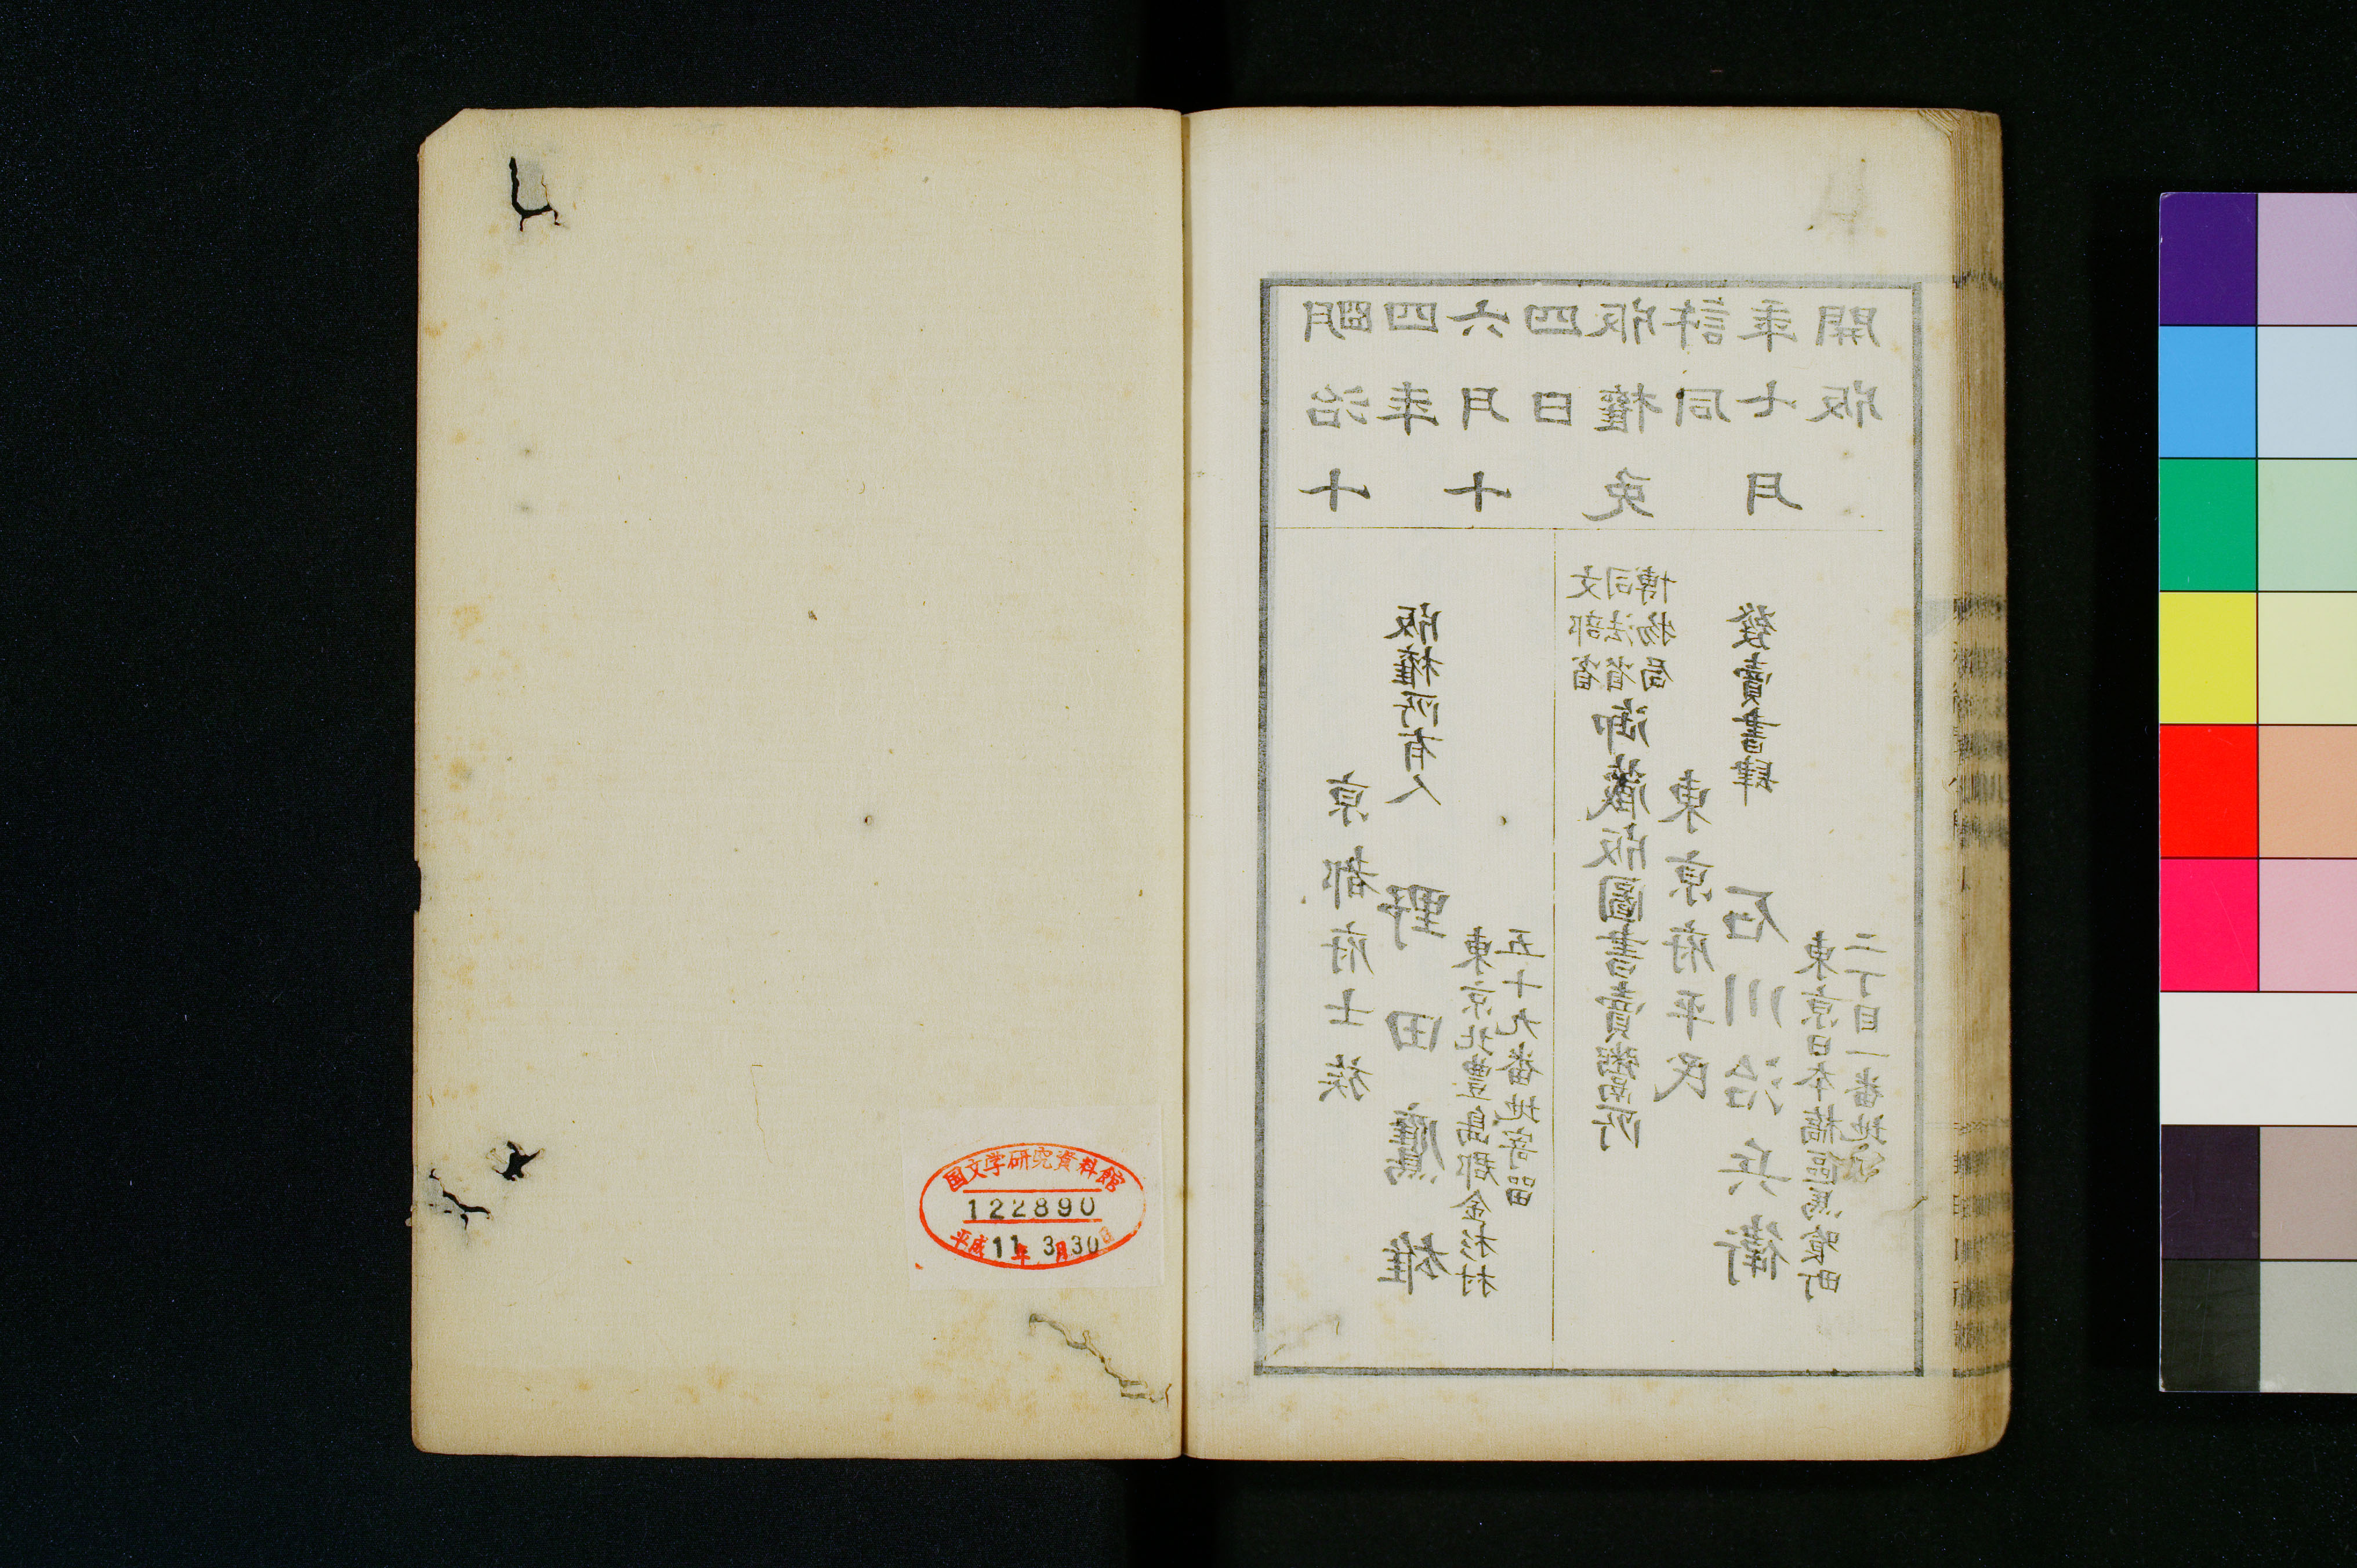 明治十
四年
六月十
四日
版權免
許同
年七月
開版
京都府士族
版權所有人 野田鷹雄
東京北豊島郡金杉村
五十九番地寄留
文部省
司法省
博物局
御蔵版圖書賣捌所
東京府平民
發賣書肆 石川治兵衛
東京日本橋區馬喰町
二丁目一番地
国文学研究資料館
122890
平成11年3月30日